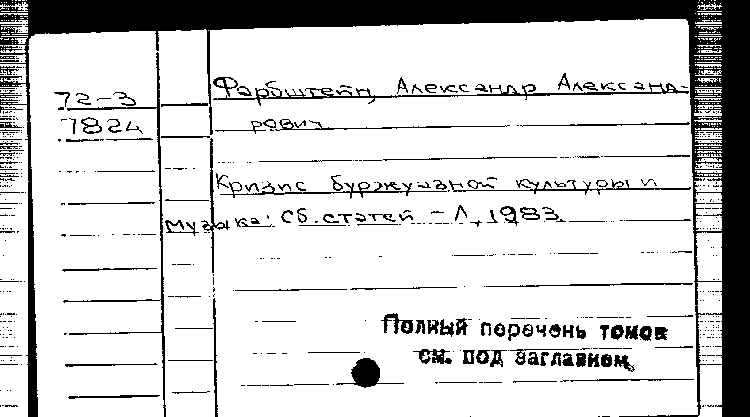 72-3
7824
Фарбштейн, Александр Александ-
рович
Кризис буржуазной культуры и
музыка: Сб. статей - Л., 1983.
Полный перечень томов
см. под заглавием.